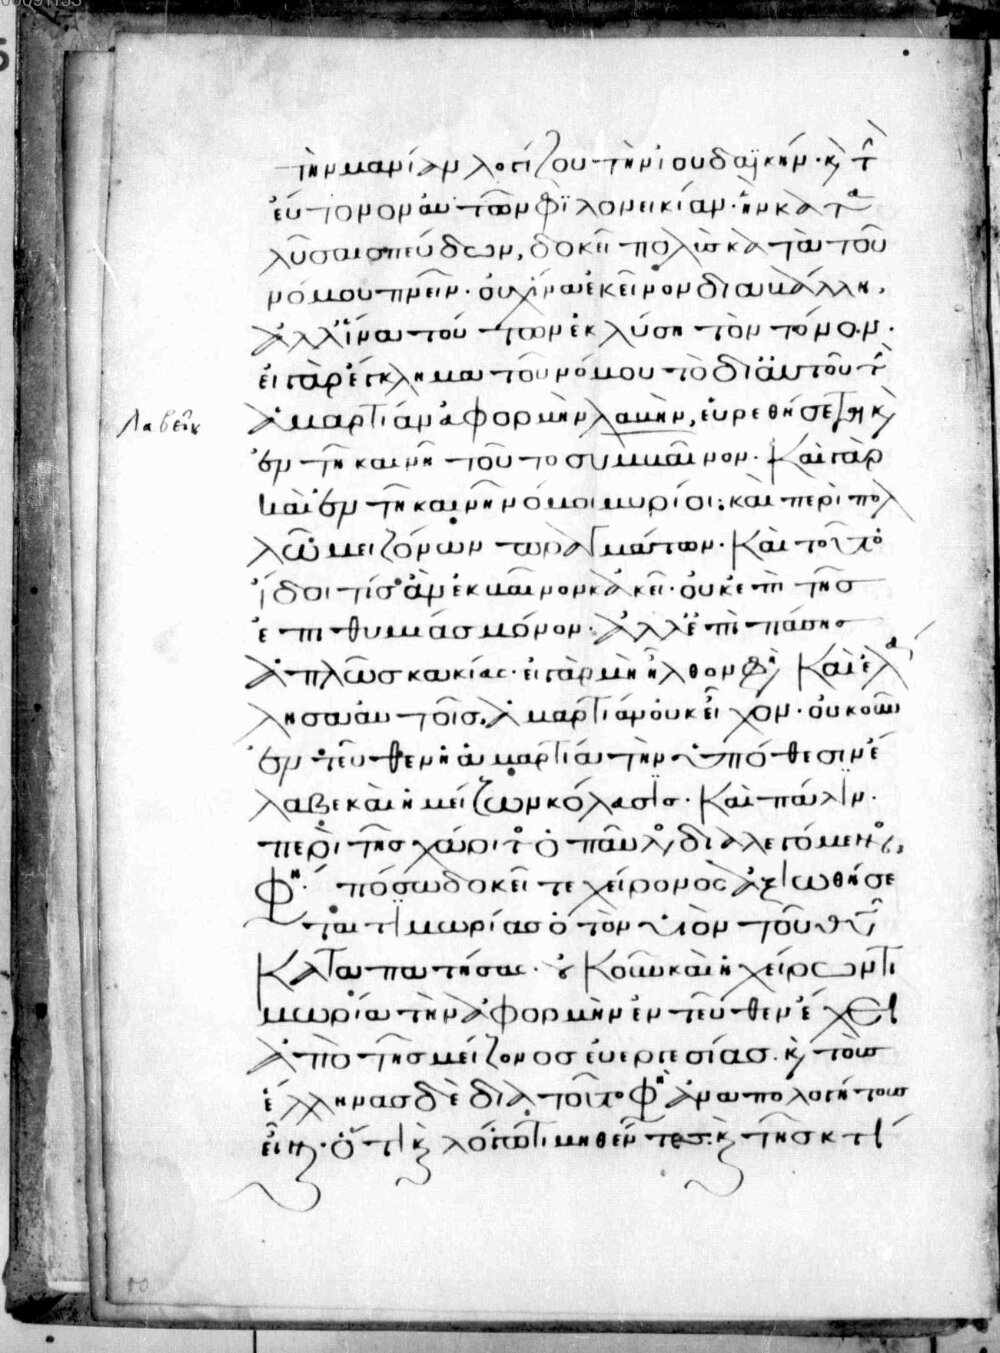 τὴν μανίαν λογίζου τὴν ἰουδαϊκήν· κ τ
ἐύτονον ἀυτῶν φϊλονεικίαν· ἣν κατα
λῦσαι σπεύδων, δοκεῖ πολλὰ κατὰ τοῦ
νόμου πνεῖν· ὀυχ ἵνα ἐκεῖνον διαβάλλη,
ἀλλ ἵνα τού των ἐκλύση τὸν τόνον·
ἐι γὰρ ἔγκλημα τοῦ νόμου τὸ δι ἀυτοῦ τ
ἁμαρτίαν ἀφορμὴν λαμὴν, ἑυρεθήσεται κ
ἐν τῆ καινῆ τοῦτο συμβαῖνον. Καὶ γὰρ
καὶ ἐν τῆ καινῆ νόμοι μυρίοι; καὶ περὶ πολ
λῶ μειζόνων πραγμάτων· Καὶ τοῦτο
ἴδοι τίς ἂν ἐκβαῖνον κἀκεῖ· ὀυκ ἐπὶ τῆς
ἐπιθυμίας μόνον· ἀλλ ἐπὶ πάσης
ἁπλῶς κακίας· ἐι γὰρ μὴ ἦλθον φη Καὶ ἐλά
λησα ἀυτοῖς, ἁμαρτίαν ὀυκ εἶχον· ὀυκοῦν
ἐντεῦθεν ἡ ἁμαρτία τὴν ὑπόθεσιν ἔ
λαβε καὶ ἡ μείζων κόλασις· Καὶ πάλιν·
περὶ τῆς χάριτο ὁ παῦλο διαλεγόμενο,
φη· πόσω δοκεῖτε χείρονος ἀξιωθήσε
ται τιμωρίας ὁ τὸν υἱὸν τοῦ θυ
Καταπατήσας· ὀυκοῦν καὶ ἡ χείρων τι
μωρία τὴν ἀφορμὴν ἐντεῦθεν ἔχει
ἀπὸ τῆς μείζονος ἐυεργεσίας· κ τοὺς
ἕλληνας δὲ διὰ τοῦτο φη ἀναπολογήτους
εἶναι· ὅτι κ λόγω τιμηθέντες· κ τῆς κτί
Λαβεῖν